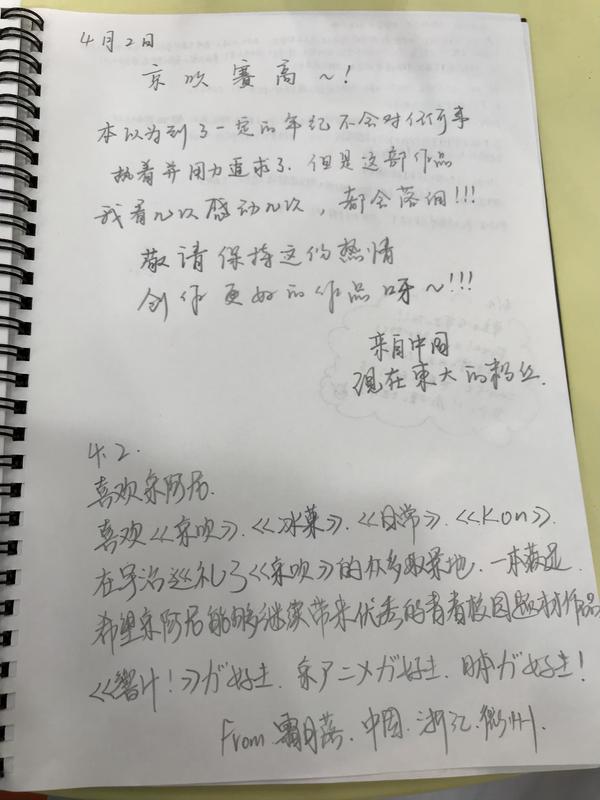 4月2日
京吹赛高～!
本以为到了一定的年纪不会对任何事
执着并用力追求了.但是这部作品
我看几次感动几次,都会落泪!!!
敬请保持这份热情
创作更好的作品呀～!!!
来自中国
现在東大的粉丝.
4.2.
喜欢京阿尼.
喜欢《京吹》.《冰菓》.《日常》.《Kon》.
在宇治巡礼了《京吹》的众多取景地.一本满足.
希望京阿尼能够继续带来优秀的青春校园题材作品
《響け!》が好き.京アニメが好き.日本が好き!
From 霜月落.中国.浙江.